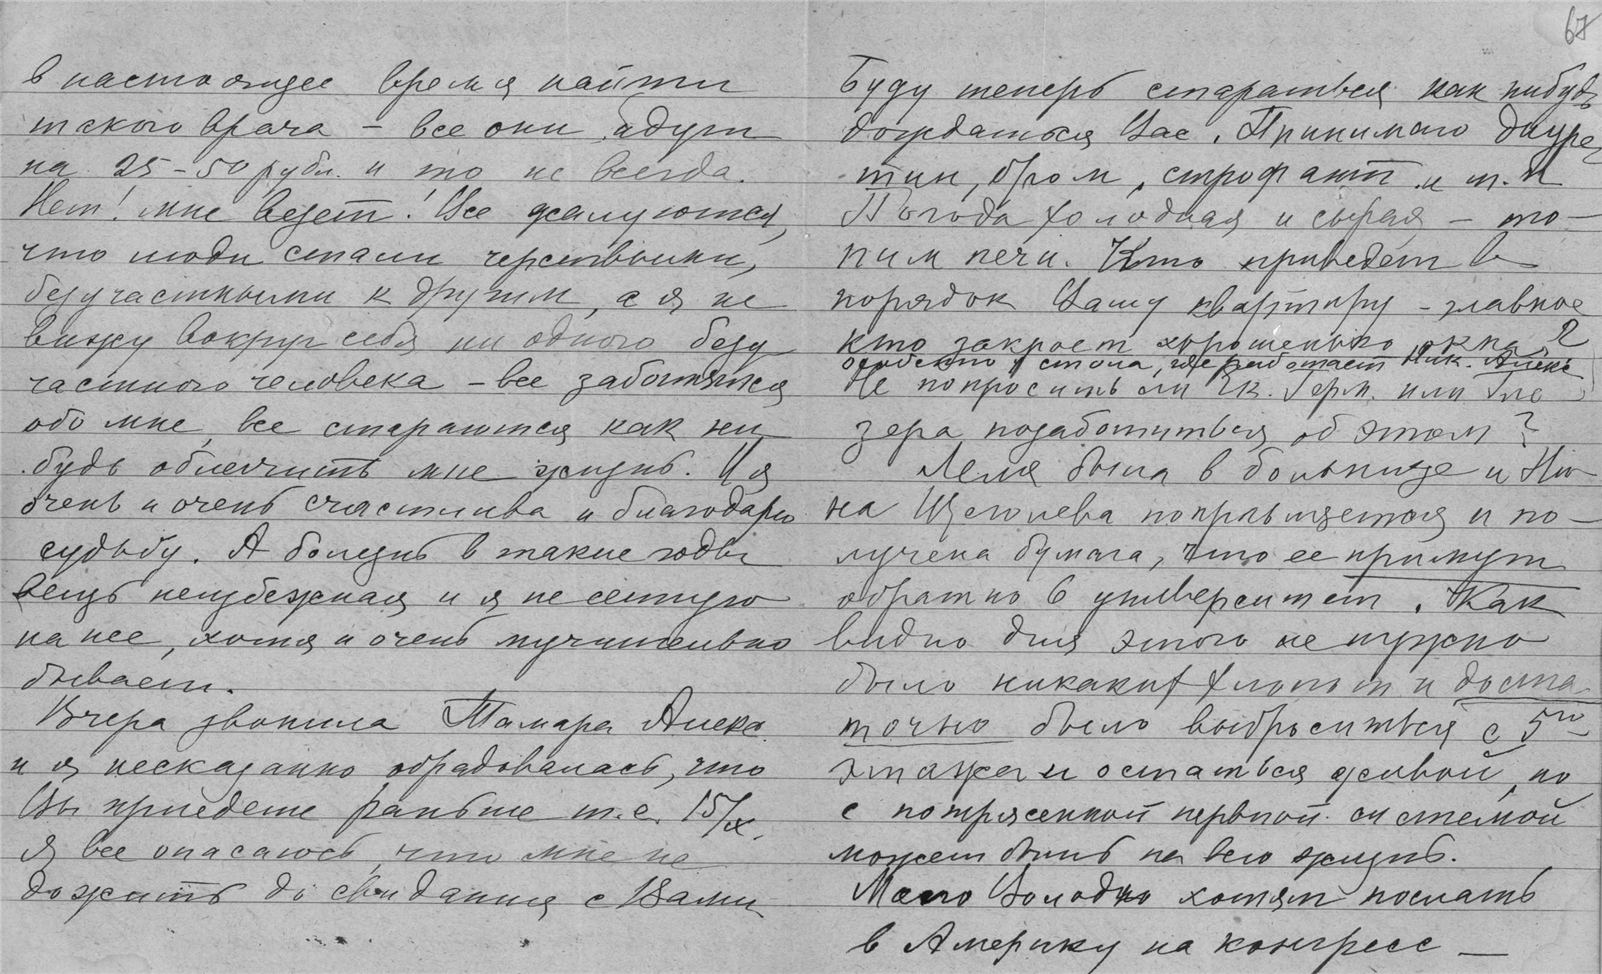 в настоящее время найти
такого врача – все они идут
на 25–50 рубл. и то не всегда.
Нет! мне везет! Все жалуются,
что люди стали черствыми,
безучастными к другим, а я не
вижу вокруг себя ни одного безу
частного человека – все заботятся
обо мне, все стараются как ни
будь облегчить мне жизнь. И я
очень и очень счастлива и благодарю
судьбу. А болезнь в такие годы
вещь неизбежная и я не сетую
на нее, хотя и очень мучительно
бывает.
Вчера звонила Тамара Алекс.
и я несказанно обрадовалась, что
Вы приедете раньше т.е. 15/IX.
Я все опасаюсь, что мне не
дожить до свидания с Вами
67
Буду теперь стараться как нибудь
дождаться Вас. Принимаю диуре
тин, бром, строфант и т.п
Погода холодная и сырая – то–
пим печи. Кто приведет в
порядок Вашу квартиру – главное
кто закроет хорошенько окна?
особенно у стола, где работает Ник. Алекс
Не попросить ли Ек. Герм. или Гле
зера позаботиться об этом?
Леля была в больнице и Ни–
на Щеголева поправляется и по–
лучена бумага, что ее примут
обратно в университет. Как
видно для этого не нужно
было никаких хлопот и доста
точно было выброситься с 5го
этажа и остаться живой, но
с потрясенной нервной системой
может быть на всю жизнь.
Мою Володю хотят послать
в Америку на конгресс –